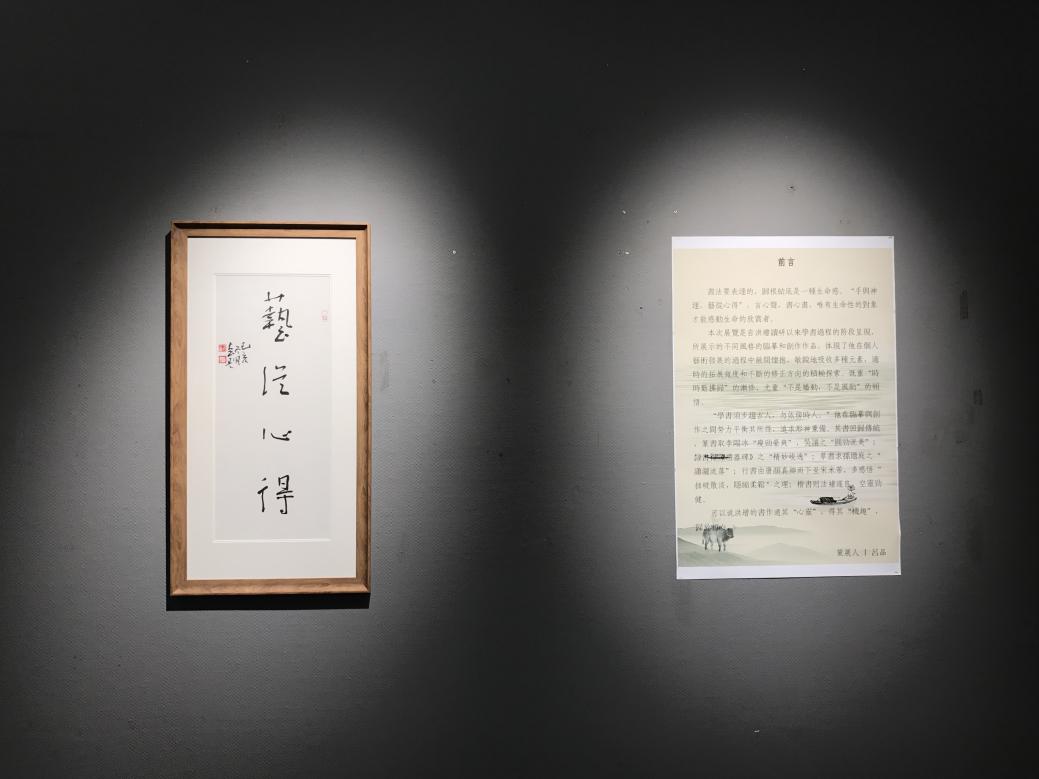 藝
從
心
得
前言
書法要表達的，歸根結底是一種生命感。“手與神
運，藝從心得”；言心聲，書心畫，唯有生命性的對象
才能感動生命的欣賞者。
本次展覽是呂洪增讀研以來學書過程的階段呈現，
所展示的不同風格的臨摹和創作作品，体現了他在個人
藝術發展的過程中敞開懷抱，敏銳地吸收多種元素，適
時的拓展寬度和不斷的修正方向的積極探索。既重“時
時勤拂拭”的漸修，尤重“不是旛動，不是風動”的頓
悟。
“學書須步趨古人，勿依傍時人。”他在臨摹與創
作之間努力平衡其所得，追求形神兼備。其書回歸傳統
，篆書取李陽冰“瘦勁
器碑》之“精妙峻逸”；草書求孫過庭之“
瀟灑流落”；行書由唐顏真卿而下至宋米芾，多感悟“
”之理；楷書則法
健。
若以說洪增的書作適其“心靈”，得其“機趣”，
策展人 | 呂品